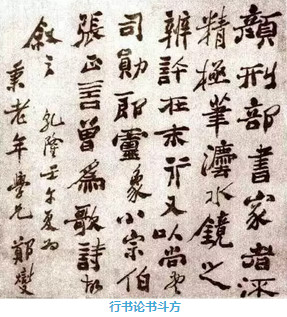 顏刑部書家者流
精極筆灋水鏡之
辨許在末行又以尚書
司勳郎盧象小宗伯
張正言曾爲歌詩故
敘之 乾隆壬午夏為
秉老年學兄 鄭燮
行书论书斗方